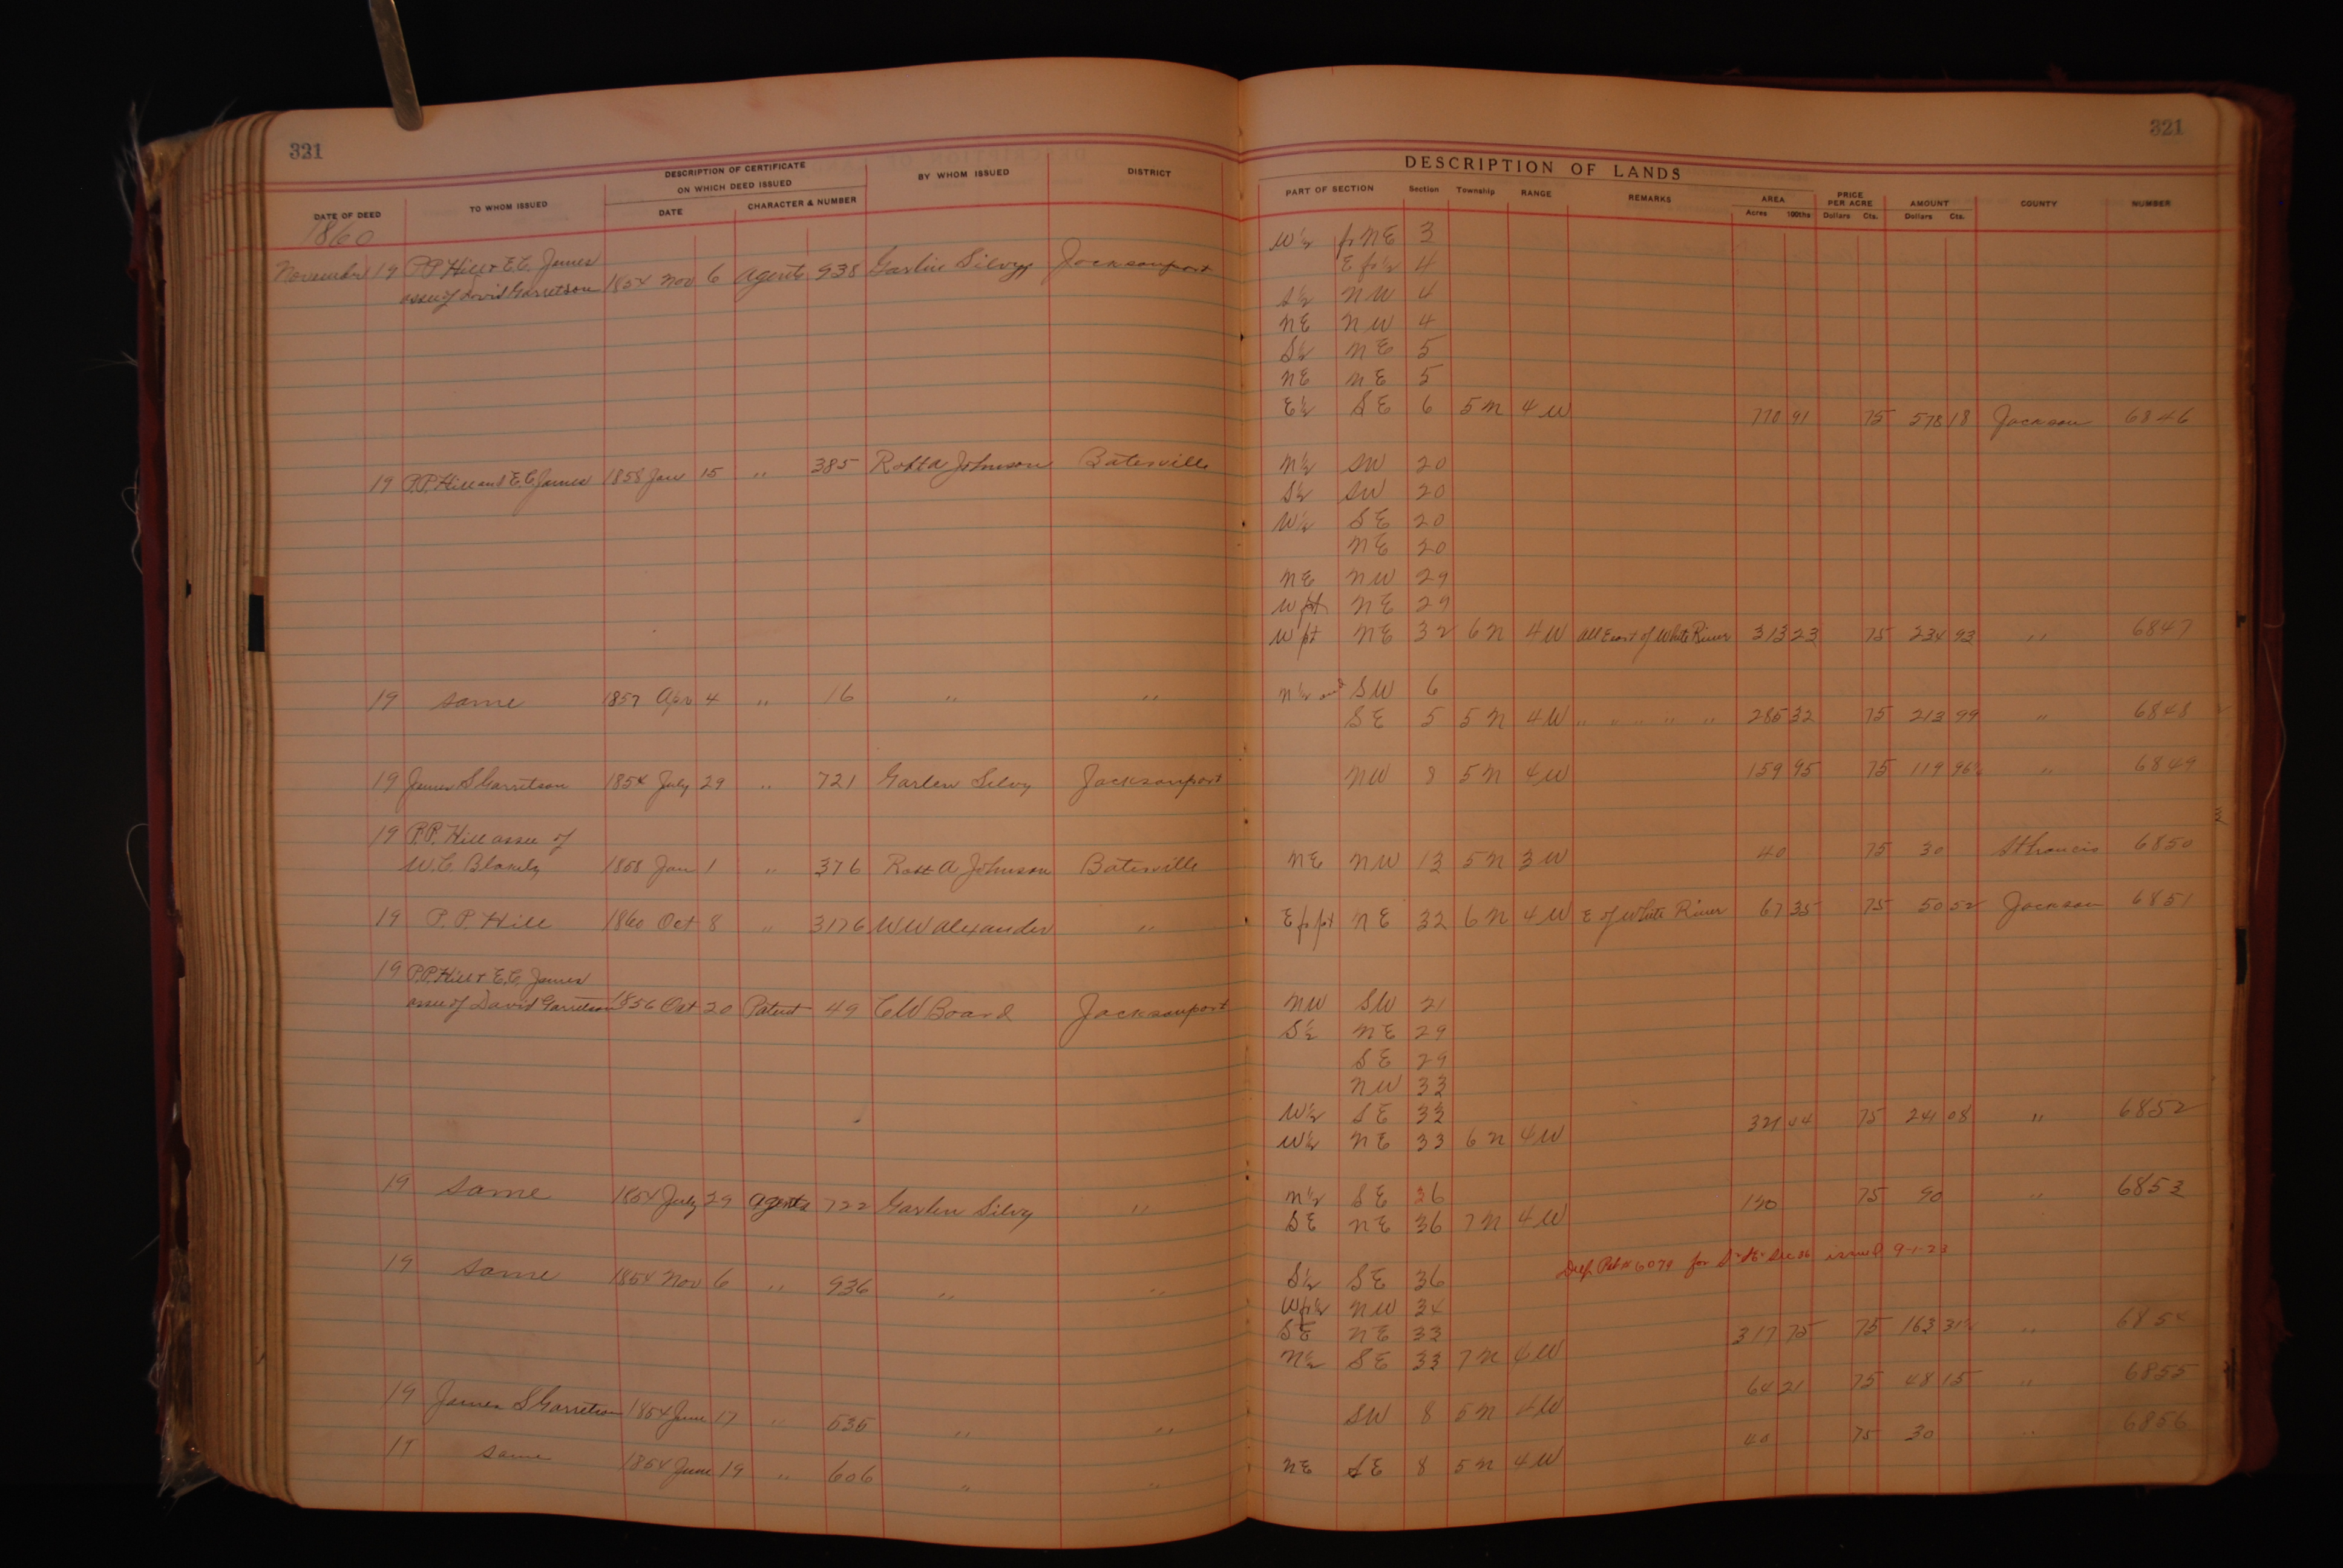 321
DESCRIPTION OF CERTIFICATE
ON WHICH DEED ISSUED
DATE OF DEED TO WHOM ISSUED DATE CHARACTER & NUMBER BY WHOM ISSUED DISTRICT
1860
November 19 P.P. Hill & E.C. James
assee of David Garretson 1854 Nov 6 Agents 938 Garlin Silvy Jacksonport
19 P.P. Hill and E.C. James 1858 Jan 15 " 385 Robt A Johnson Batesville
19 Same 1857 Apr 4 " 16 " "
19 James S Garretson 1854 July 29 " 721 Garlen Silvy Jacksonport
19 P.P. Hill assee of
W.C. Blakely 1858 Jan 1 " 376 Robt A Johnson Batesville
19 P. P. Hill 1860 Oct 8 " 3176 WW Alexander "
19 P.P. Hill & E.C. James
assee of David Garretson 1856 Oct 20 Patent 49 CW Board Jacksonport
19 Same 1854 July 29 Agents 722 Garlen Silvy "
19 Same 1854 Nov 6 " 936 " "
19 James S Garretson 1854 June 17 " 535 " "
19 Same 1854 June 19 " 606 " "
321
DESCRIPTION OF LANDS
PART OF SECTION Section Township RANGE REMARKS AREA PRICE PER ACRE AMOUNT COUNTY NUMBER
Acres 100ths Dollars Cts. Dollars Cts.
W½ fr NE 3
E fr ½ 4
S½ NW 4
NE NW 4
S½ NE 5
NE NE 5
E½ SE 6 5N 4W 770 91 75 578 18 Jackson 6846
N½ SW 20
S½ SW 20
W½ SE 20
NE 20
NE NW 29
W pt NE 29
W pt NE 32 6N 4W All East of White River 313 23 75 234 93 " 6847
N½ and SW 6
SE 5 5N 4W " " " " " 285 32 75 213 99 " 6848
NW 8 5N 4W 159 95 75 119 96½ " 6849
NE NW 13 5N 3W 40 75 30 St Francis 6850
E fr pt NE 32 6N 4W E of White River 67 35 75 50 52 Jackson 6851
NW SW 21
S½ NE 29
SE 29
NW 33
W½ SE 33
W½ NE 33 6N 4W 321 44 75 241 08 " 6852
N½ SE 36
SE NE 36 7N 4W 120 75 90 " 6853
Dup. Pat # 6079 for Sec 36 issued 9-1-23
S½ SE 36
W fr ½ NW 34
SE NE 33
N½ SE 33 7N 4W 317 75 75 163 31½ " 6854
SW 8 5N 4W 64 21 75 48 15 " 6855
NE SE 8 5N 4W 40 75 30 " 6856